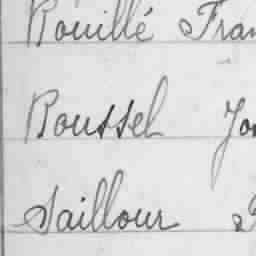 Rouillé Fran
Roussel
Saillour